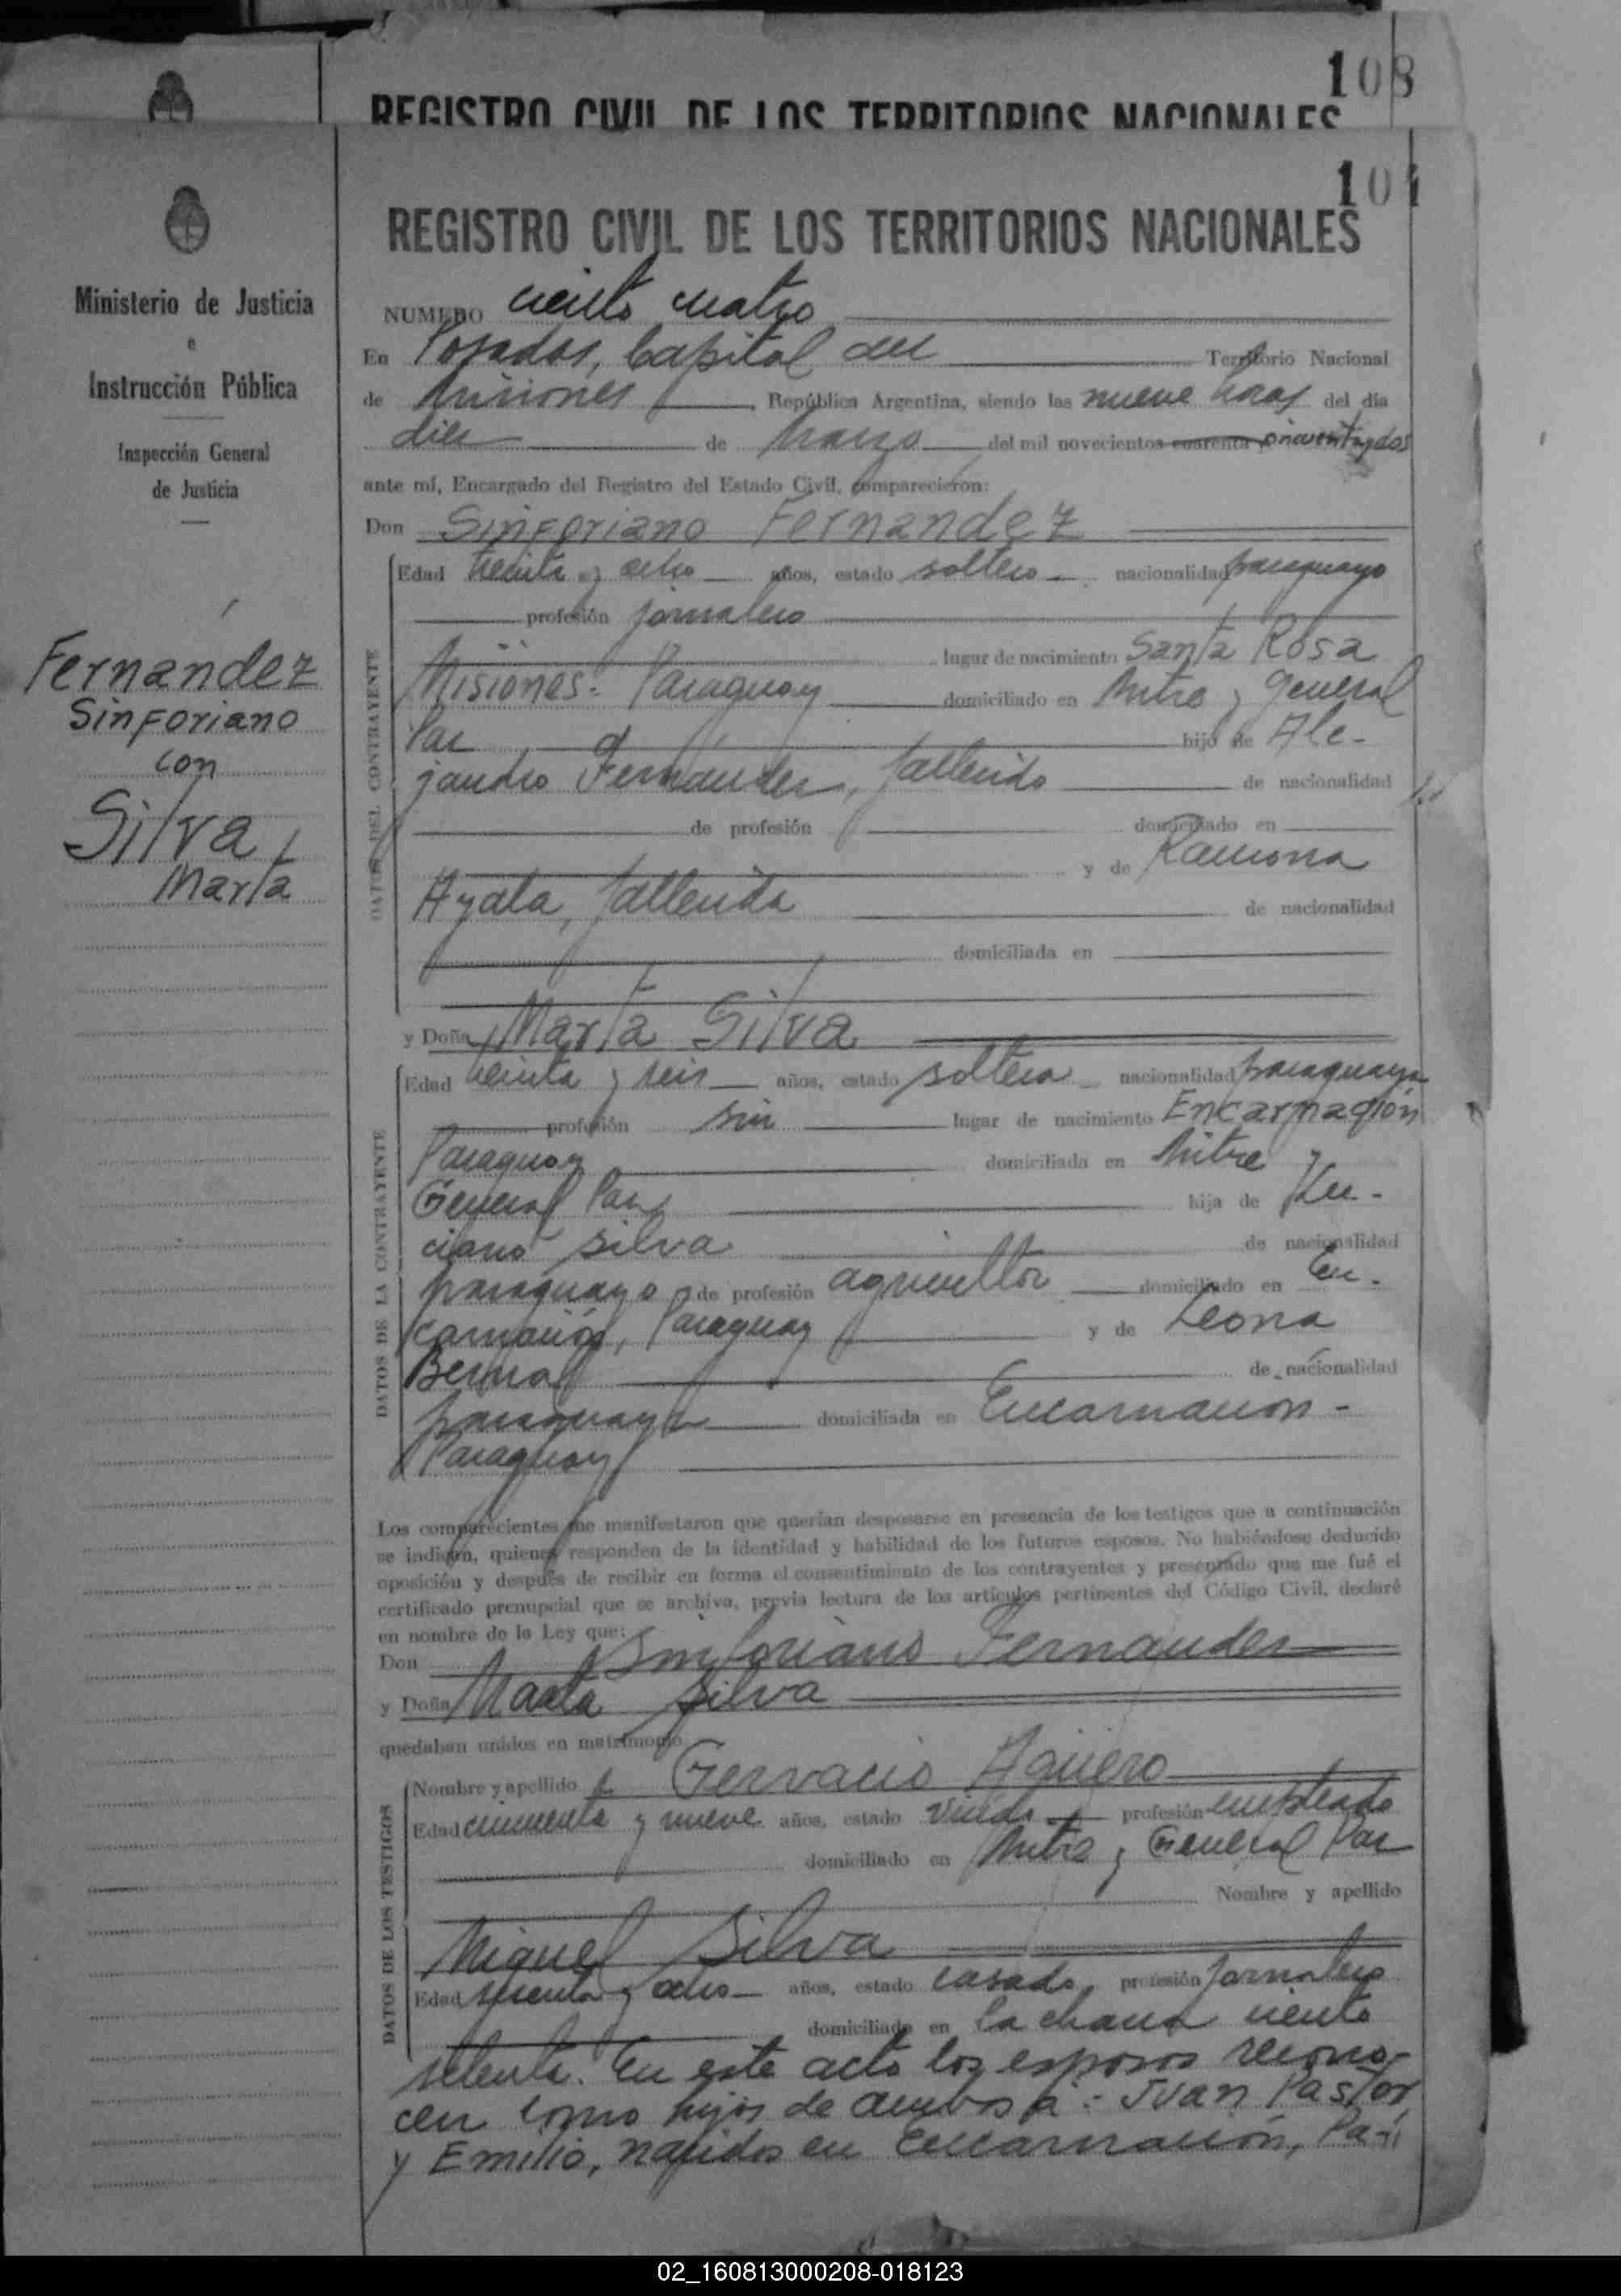 108
REGISTRO CIVIL DE LOS TERRITORIOS NACIONALES
104
REGISTRO CIVIL DE LOS TERRITORIOS NACIONALES
Ministerio de Justicia
e
Instrucción Pública
Inspección General
de Justicia
Fernandez
Sinforiano
con
Silva,
Marta
NUMERO ciento cuatro
En Posadas, Capital del Territorio Nacional
de Misiones República Argentina, siendo las nueve horas del día
diez de Marzo del mil novecientos cuarenta y cincuentaydos
ante mí, Encargado del Registro del Estado Civil, comparecieron:
Don Sinforiano Fernandez
DATOS DEL CONTRAYENTE
Edad treinta y ocho años, estado soltero nacionalidad paraguayo
profesión jornalero
lugar de nacimiento Santa Rosa
Misiones: Paraguay domiciliado en Mitre y General
Paz, hijo de Ale-
jandro Fernández, fallecido de nacionalidad
de profesión domiciliado en
y de Ramona
Ayala, fallecida de nacionalidad
domiciliada en
y Doña Marta Silva
DATOS DE LA CONTRAYENTE
Edad treinta y seis años, estado soltera nacionalidad paraguaya
profesión sin lugar de nacimiento Encarnación
Paraguay domiciliada en Mitre y
General Paz hija de Lu-
ciano Silva de nacionalidad
paraguayo de profesión agricultor domiciliado en En-
carnación, Paraguay y de Leona
Bernal de nacionalidad
paraguaya domiciliada en Encarnación-
Paraguay
Los comparecientes me manifestaron que querían desposarse en presencia de los testigos que a continuación
se indican, quienes responden de la identidad y habilidad de los futuros esposos. No habiéndose deducido
oposición y después de recibir en forma el consentimiento de los contrayentes y presentado que me fué el
certificado prenupcial que se archiva, previa lectura de los artículos pertinentes del Código Civil, declaré
en nombre de la Ley que:
Don Sinforiano Fernandez
y Doña Marta Silva
quedaban unidos en matrimonio.
DATOS DE LOS TESTIGOS
Nombre y apellido Gervacio Agüero
Edad cincuenta y nueve años, estado viudo profesión empleado
domiciliado en Mitre y General Paz
Nombre y apellido
Miguel Silva
Edad sesenta y ocho años, estado casado profesión jornalero
domiciliado en la chacra ciento
setenta. En este acto los esposos recono-
cen como hijos de ambos a: Juan Pastor
y Emilio, nacidos en Encarnación, Pa-
02_160813000208-018123